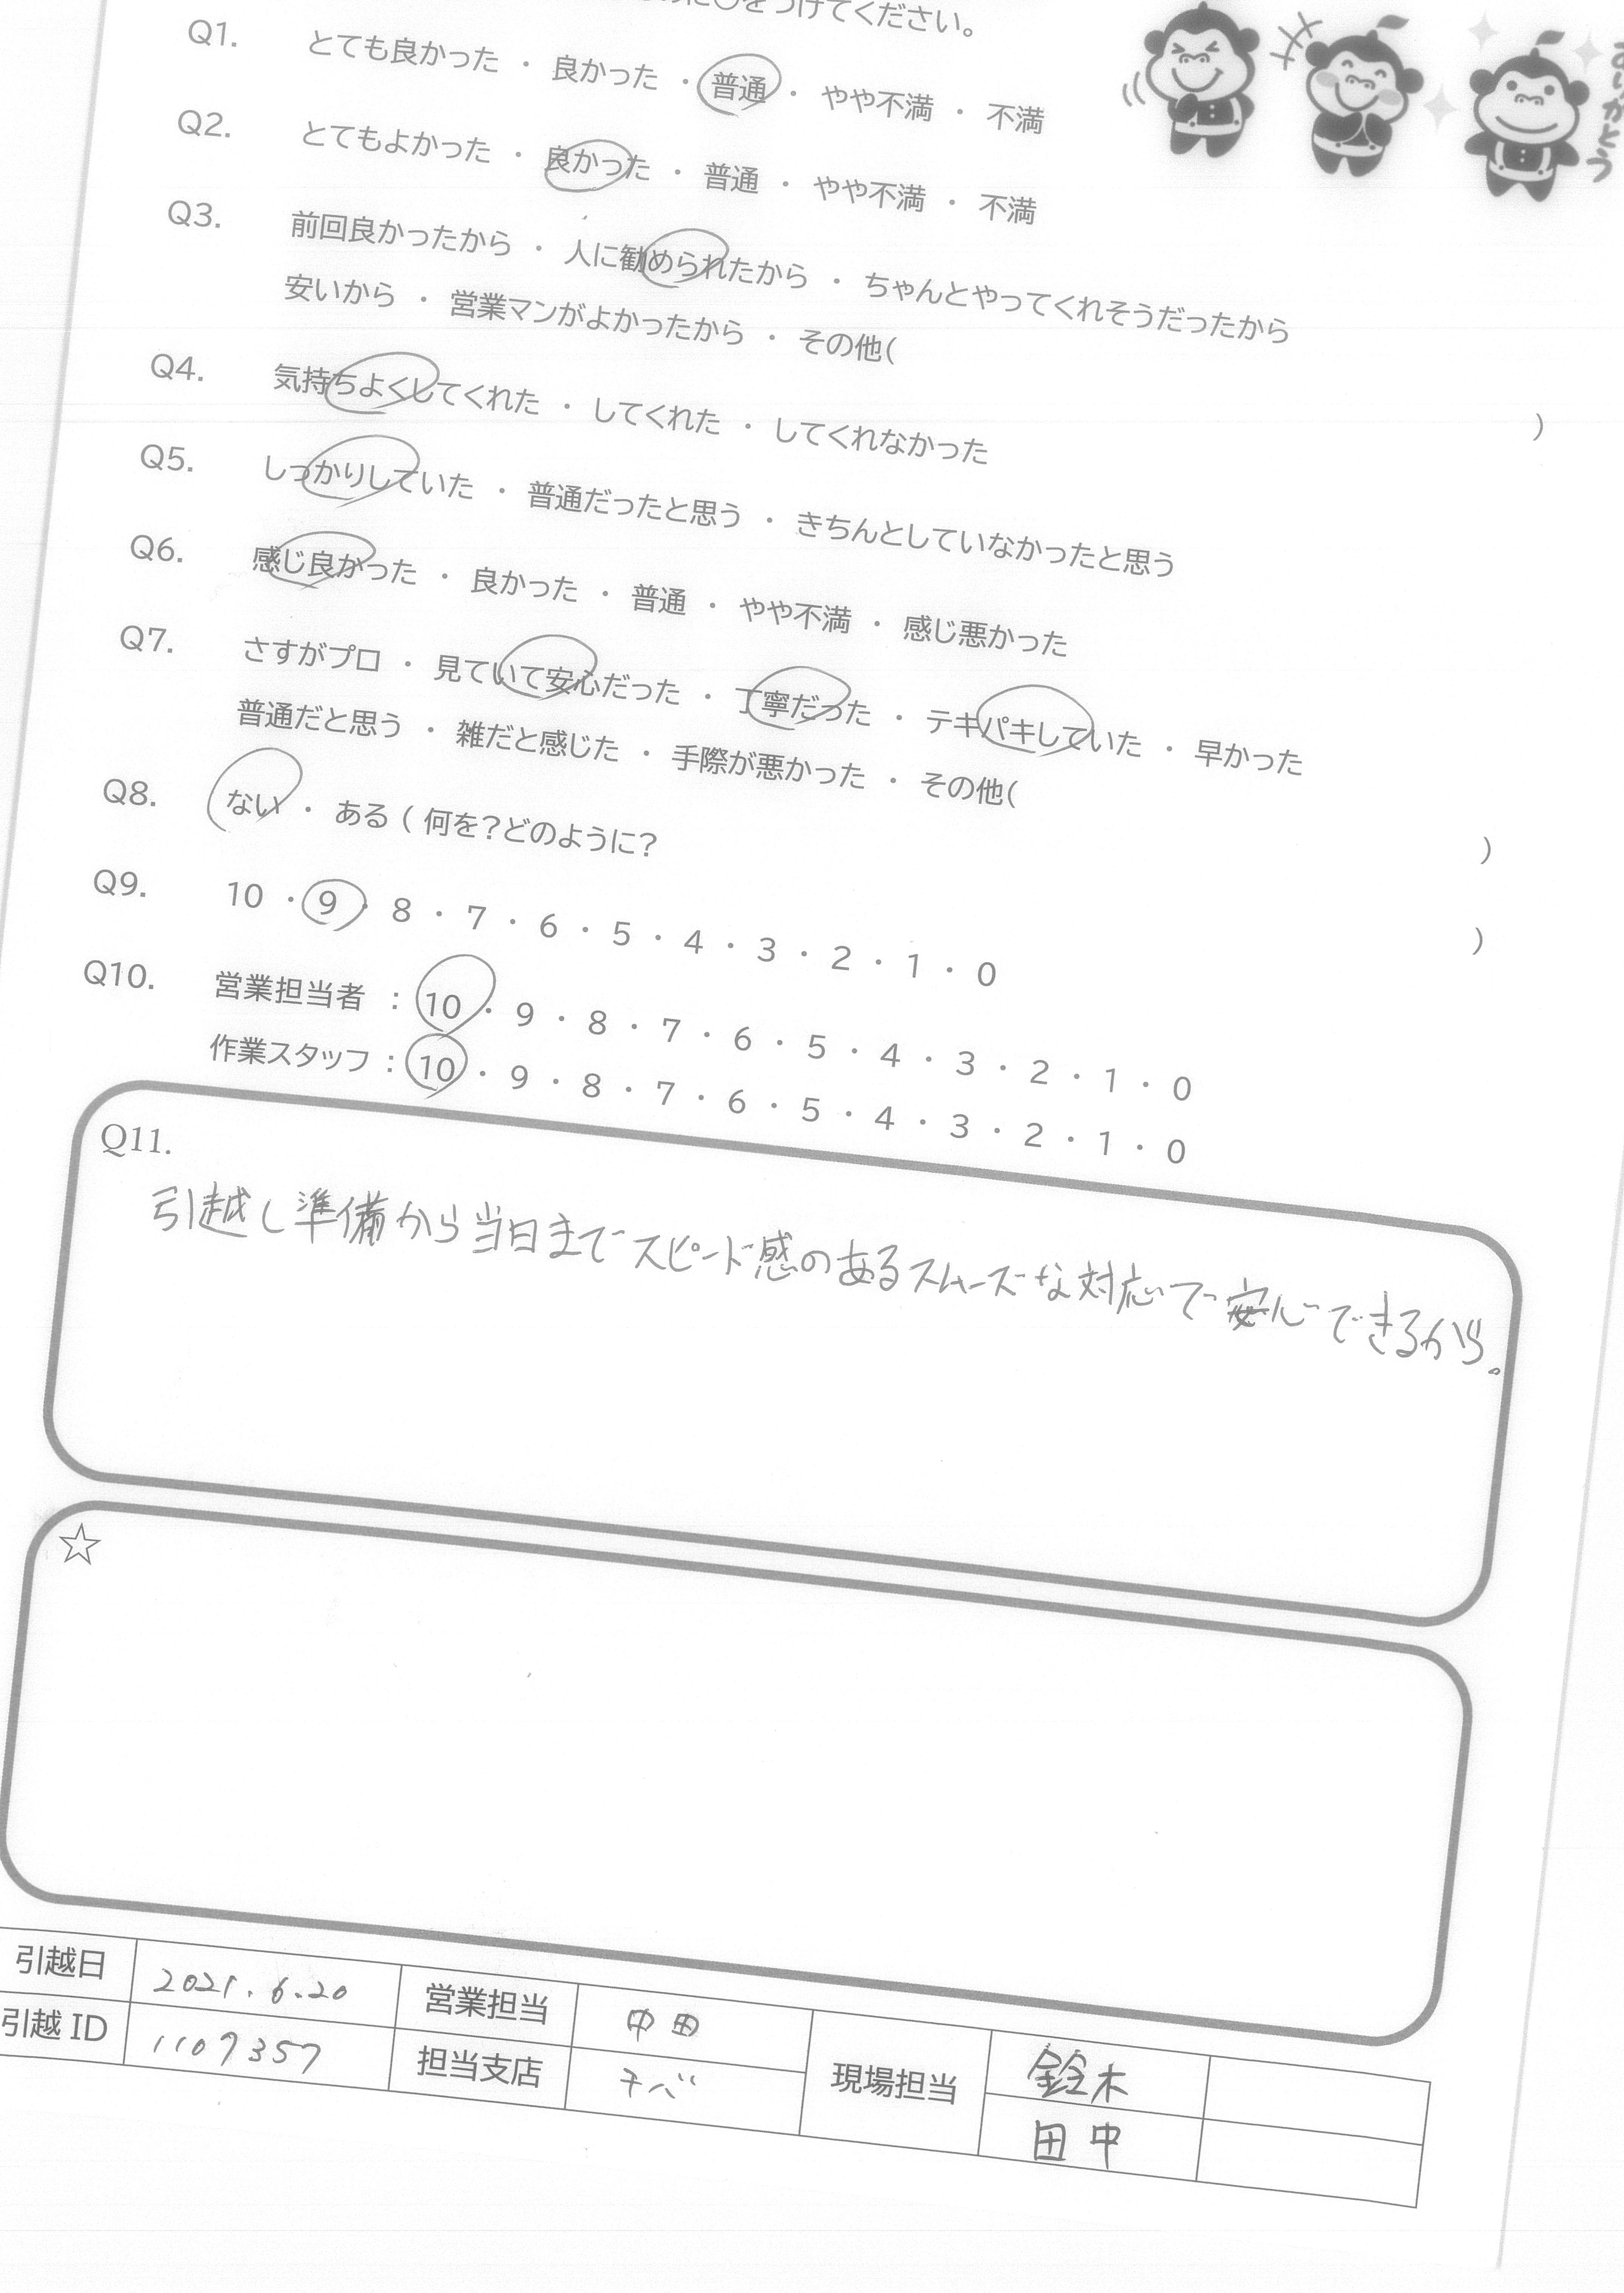 に○をつけてください。
ありがとう
Q1. とても良かった ・ 良かった ・ 普通 ・ やや不満 ・ 不満
Q2. とてもよかった ・ 良かった ・ 普通 ・ やや不満 ・ 不満
Q3. 前回良かったから ・ 人に勧められたから ・ ちゃんとやってくれそうだったから
安いから ・ 営業マンがよかったから ・ その他( )
Q4. 気持ちよくしてくれた ・ してくれた ・ してくれなかった
Q5. しっかりしていた ・ 普通だったと思う ・ きちんとしていなかったと思う
Q6. 感じ良かった ・ 良かった ・ 普通 ・ やや不満 ・ 感じ悪かった
Q7. さすがプロ ・ 見ていて安心だった ・ 丁寧だった ・ テキパキしていた ・ 早かった
普通だと思う ・ 雑だと感じた ・ 手際が悪かった ・ その他( )
Q8. ない ・ ある ( 何を?どのように? )
Q9. 10 ・ 9 ・ 8 ・ 7 ・ 6 ・ 5 ・ 4 ・ 3 ・ 2 ・ 1 ・ 0
Q10. 営業担当者 : 10 ・ 9 ・ 8 ・ 7 ・ 6 ・ 5 ・ 4 ・ 3 ・ 2 ・ 1 ・ 0
作業スタッフ : 10 ・ 9 ・ 8 ・ 7 ・ 6 ・ 5 ・ 4 ・ 3 ・ 2 ・ 1 ・ 0
Q11.
引越し準備から当日までスピード感のあるスムーズな対応で安心できるから。
☆
引越日 2021.6.20 営業担当 中田 現場担当 鈴木
引越 ID 1107357 担当支店 チバ 田中